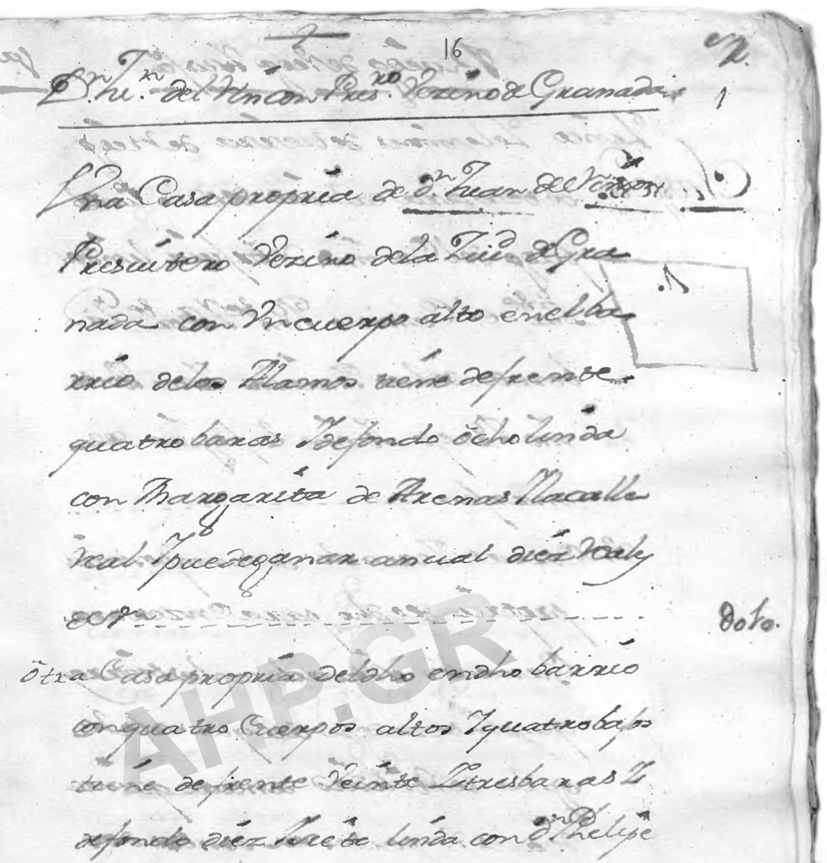 16
Dn Jun del Rincon Presro Vezino de Granada
1
Una Casa propria de dn Juan del Rincon
Presvitero Vezino dela Ziud de Gra
1.
nada con Un cuerpo alto enel ba
rrio delos Alamos tiene defrente
quatro baras Y defondo ocho linda
con Margarita de Arenas Y la calle
Real Y puede ganar anual diez Reals
de Vn
Otra Casa propria deldho endho barrio
con quatro Cuerpos altos Y quatro bajos
tiene defrente Veinte Y tres baras Y
defondo diez Y siete linda con dn Phelipe
AHP.GR